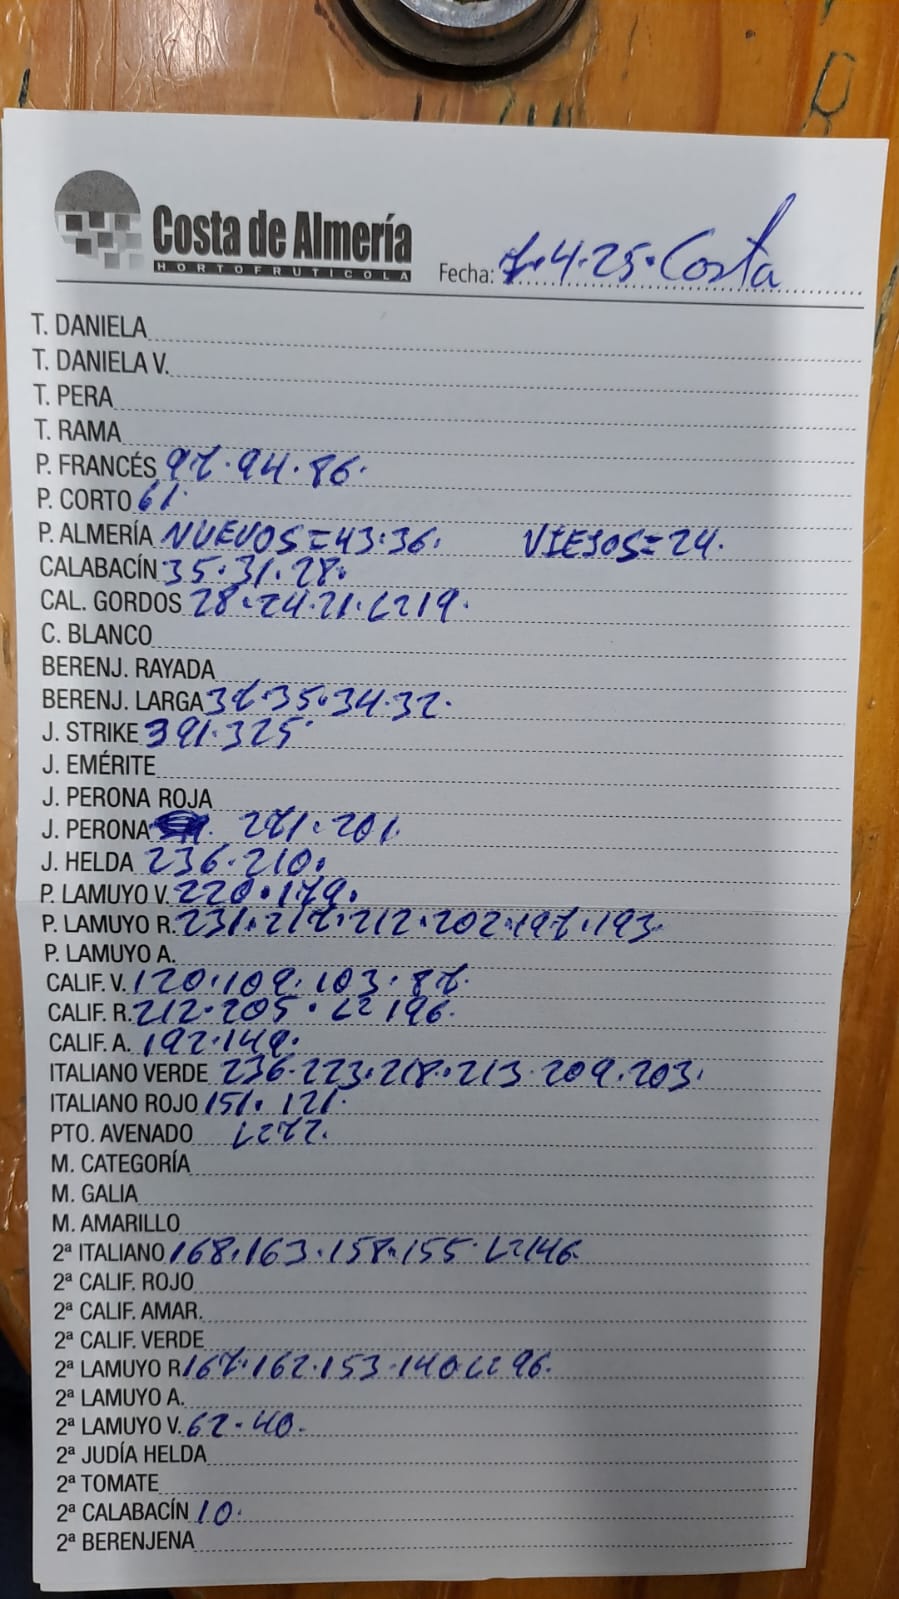 Costa de Almería
HORTOFRUTICOLA
Fecha: 7.4.25. Costa
T. DANIELA
T. DANIELA V.
T. PERA
T. RAMA
P. FRANCÉS 97.94.86.
P. CORTO 61.
P. ALMERÍA NUEVOS=43.36. VIEJOS=24.
CALABACÍN 35.31.28.
CAL. GORDOS 28.24.21.L219.
C. BLANCO
BERENJ. RAYADA
BERENJ. LARGA 37.35.34.32.
J. STRIKE 391.325
J. EMÉRITE
J. PERONA ROJA
J. PERONA 271.201.
J. HELDA 236.210.
P. LAMUYO V. 220.179.
P. LAMUYO R. 231.217.212.202.197.193.
P. LAMUYO A.
CALIF. V. 120.109.103.87.
CALIF. R. 212.205.L2196.
CALIF. A. 192.149.
ITALIANO VERDE 236.223.218.213.209.203.
ITALIANO ROJO 151.121.
PTO. AVENADO L277.
M. CATEGORÍA
M. GALIA
M. AMARILLO
2ª ITALIANO 168.163.158.155.L2146.
2ª CALIF. ROJO
2ª CALIF. AMAR.
2ª CALIF. VERDE
2ª LAMUYO R 167.162.153.140L296.
2ª LAMUYO A.
2ª LAMUYO V. 62.40.
2ª JUDÍA HELDA
2ª TOMATE
2ª CALABACÍN 10.
2ª BERENJENA